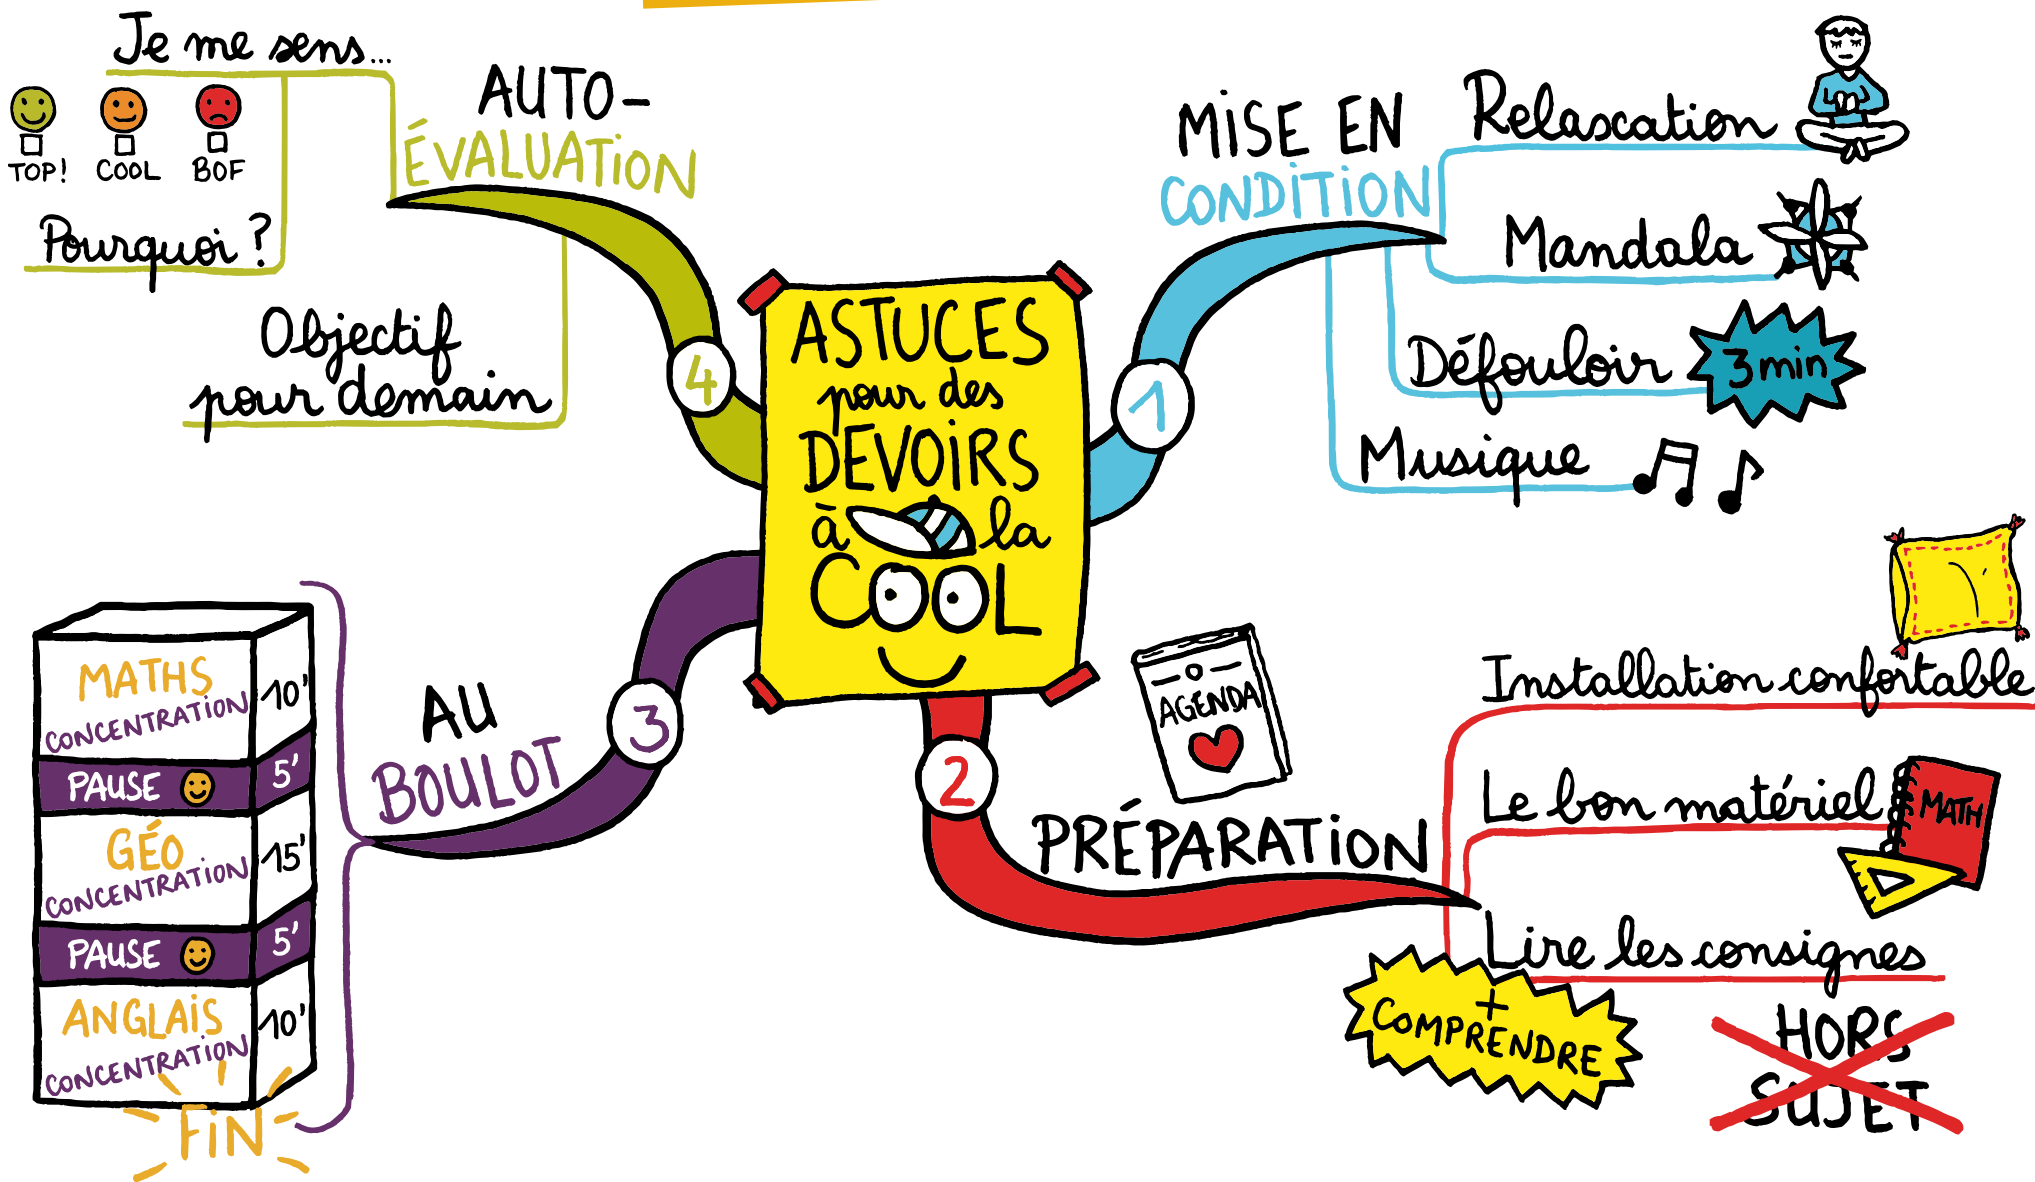 ASTUCES
pour des
DEVOIRS
à la
COOL
1
MISE EN
CONDITION
Relaxation
Mandala
Défouloir
3 min
Musique
2
PRÉPARATION
AGENDA
Installation confortable
Le bon matériel
MATH
Lire les consignes
+
COMPRENDRE
HORS
SUJET
3
AU
BOULOT
MATHS
CONCENTRATION
10'
PAUSE
5'
GÉO
CONCENTRATION
15'
PAUSE
5'
ANGLAIS
CONCENTRATION
10'
FIN
4
AUTO-
ÉVALUATION
Je me sens...
TOP! COOL BOF
Pourquoi ?
Objectif
pour demain